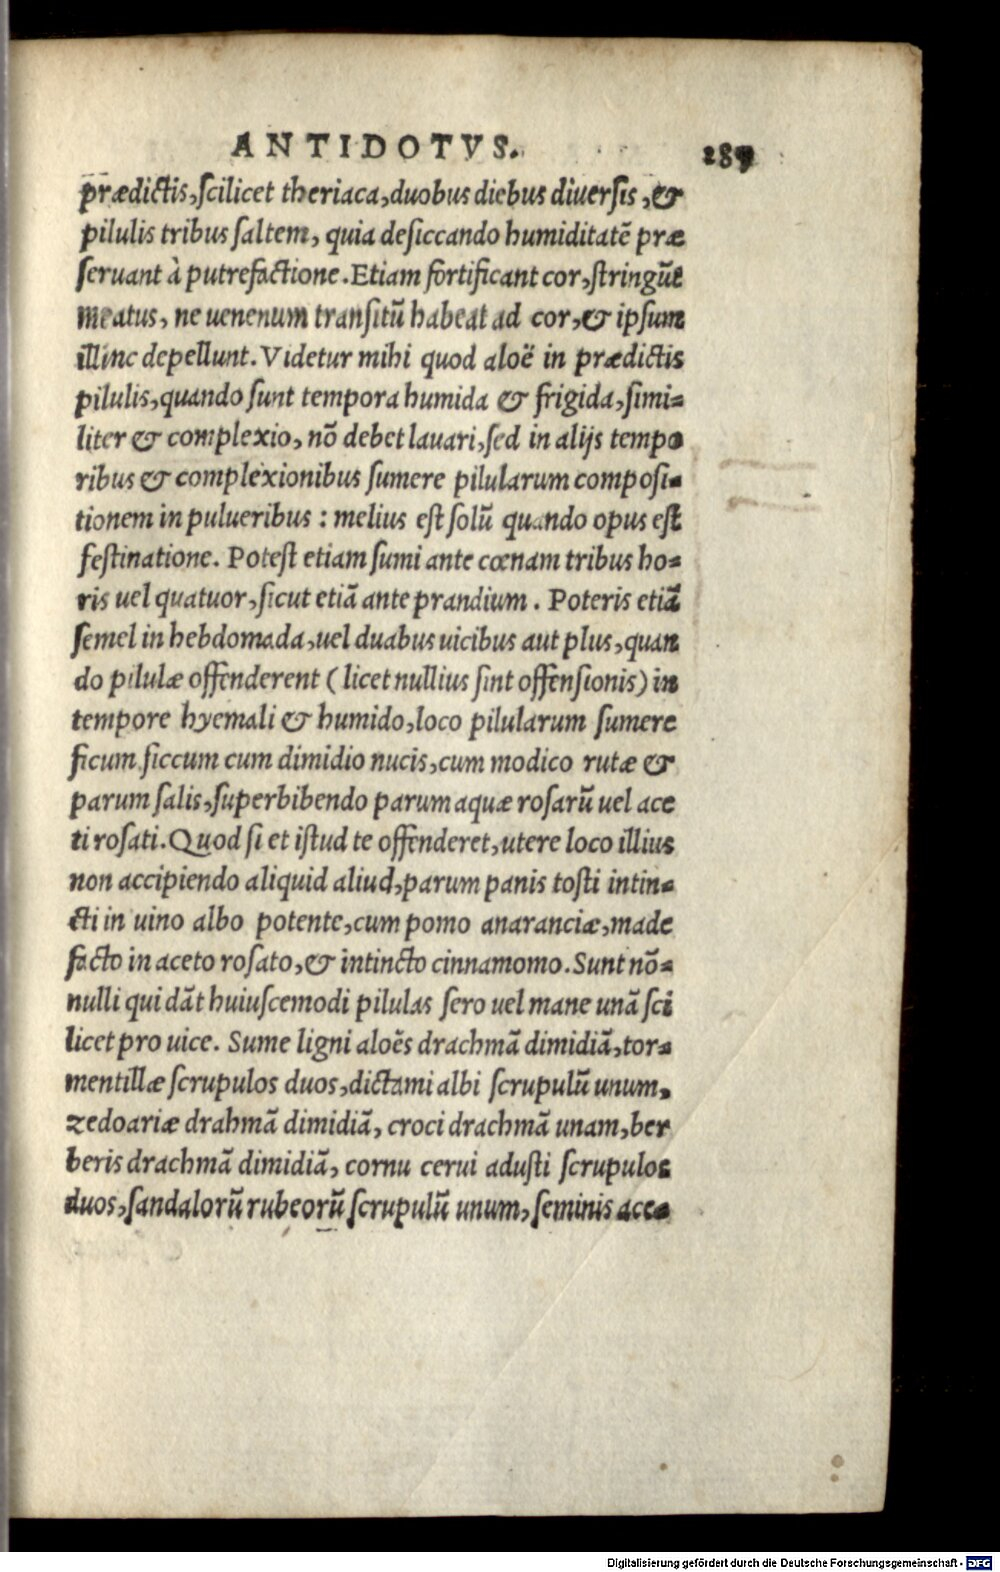 ANTIDOTVS.
prædictis, scilicet theriaca, duobus diebus diuersis, &
pilulis tribus saltem, quia desiccando humiditatē præ
seruant à putrefactione. Etiam fortificant cor, stringūt
meatus, ne uenenum transitū habeat ad cor, & ipsum
illinc depellunt. Videtur mihi quod aloë in prædictis
pilulis, quando sunt tempora humida & frigida, simi=
liter & complexio, nō debet lauari, sed in alijs tempo
ribus & complexionibus sumere pilularum composi=
tionem in pulueribus : melius est solū quando opus est
festinatione. Potest etiam sumi ante cœnam tribus ho=
ris uel quatuor, sicut etiā ante prandium. Poteris etiā
semel in hebdomada, uel duabus uicibus aut plus, quan
do pilulæ offenderent (licet nullius sint offensionis) in
tempore hyemali & humido, loco pilularum sumere
ficum siccum cum dimidio nucis, cum modico rutæ &
parum salis, superbibendo parum aquæ rosarū uel ace
ti rosati. Quod si et istud te offenderet, utere loco illius
non accipiendo aliquid aliud, parum panis tosti intin=
cti in uino albo potente, cum pomo anaranciæ, made
facto in aceto rosato, & intincto cinnamomo. Sunt nō=
nulli qui dāt huiuscemodi pilulas sero uel mane unā sci
licet pro uice. Sume ligni aloës drachmā dimidiā, tor=
mentillæ scrupulos duos, dictami albi scrupulū unum,
zedoariæ drahmā dimidiā, croci drachmā unam, ber
beris drachmā dimidiā, cornu cerui adusti scrupulos
duos, sandalorū rubeorū scrupulū unum, seminis ace=
Digitalisierung gefördert durch die Deutsche Forschungsgemeinschaft - DFG